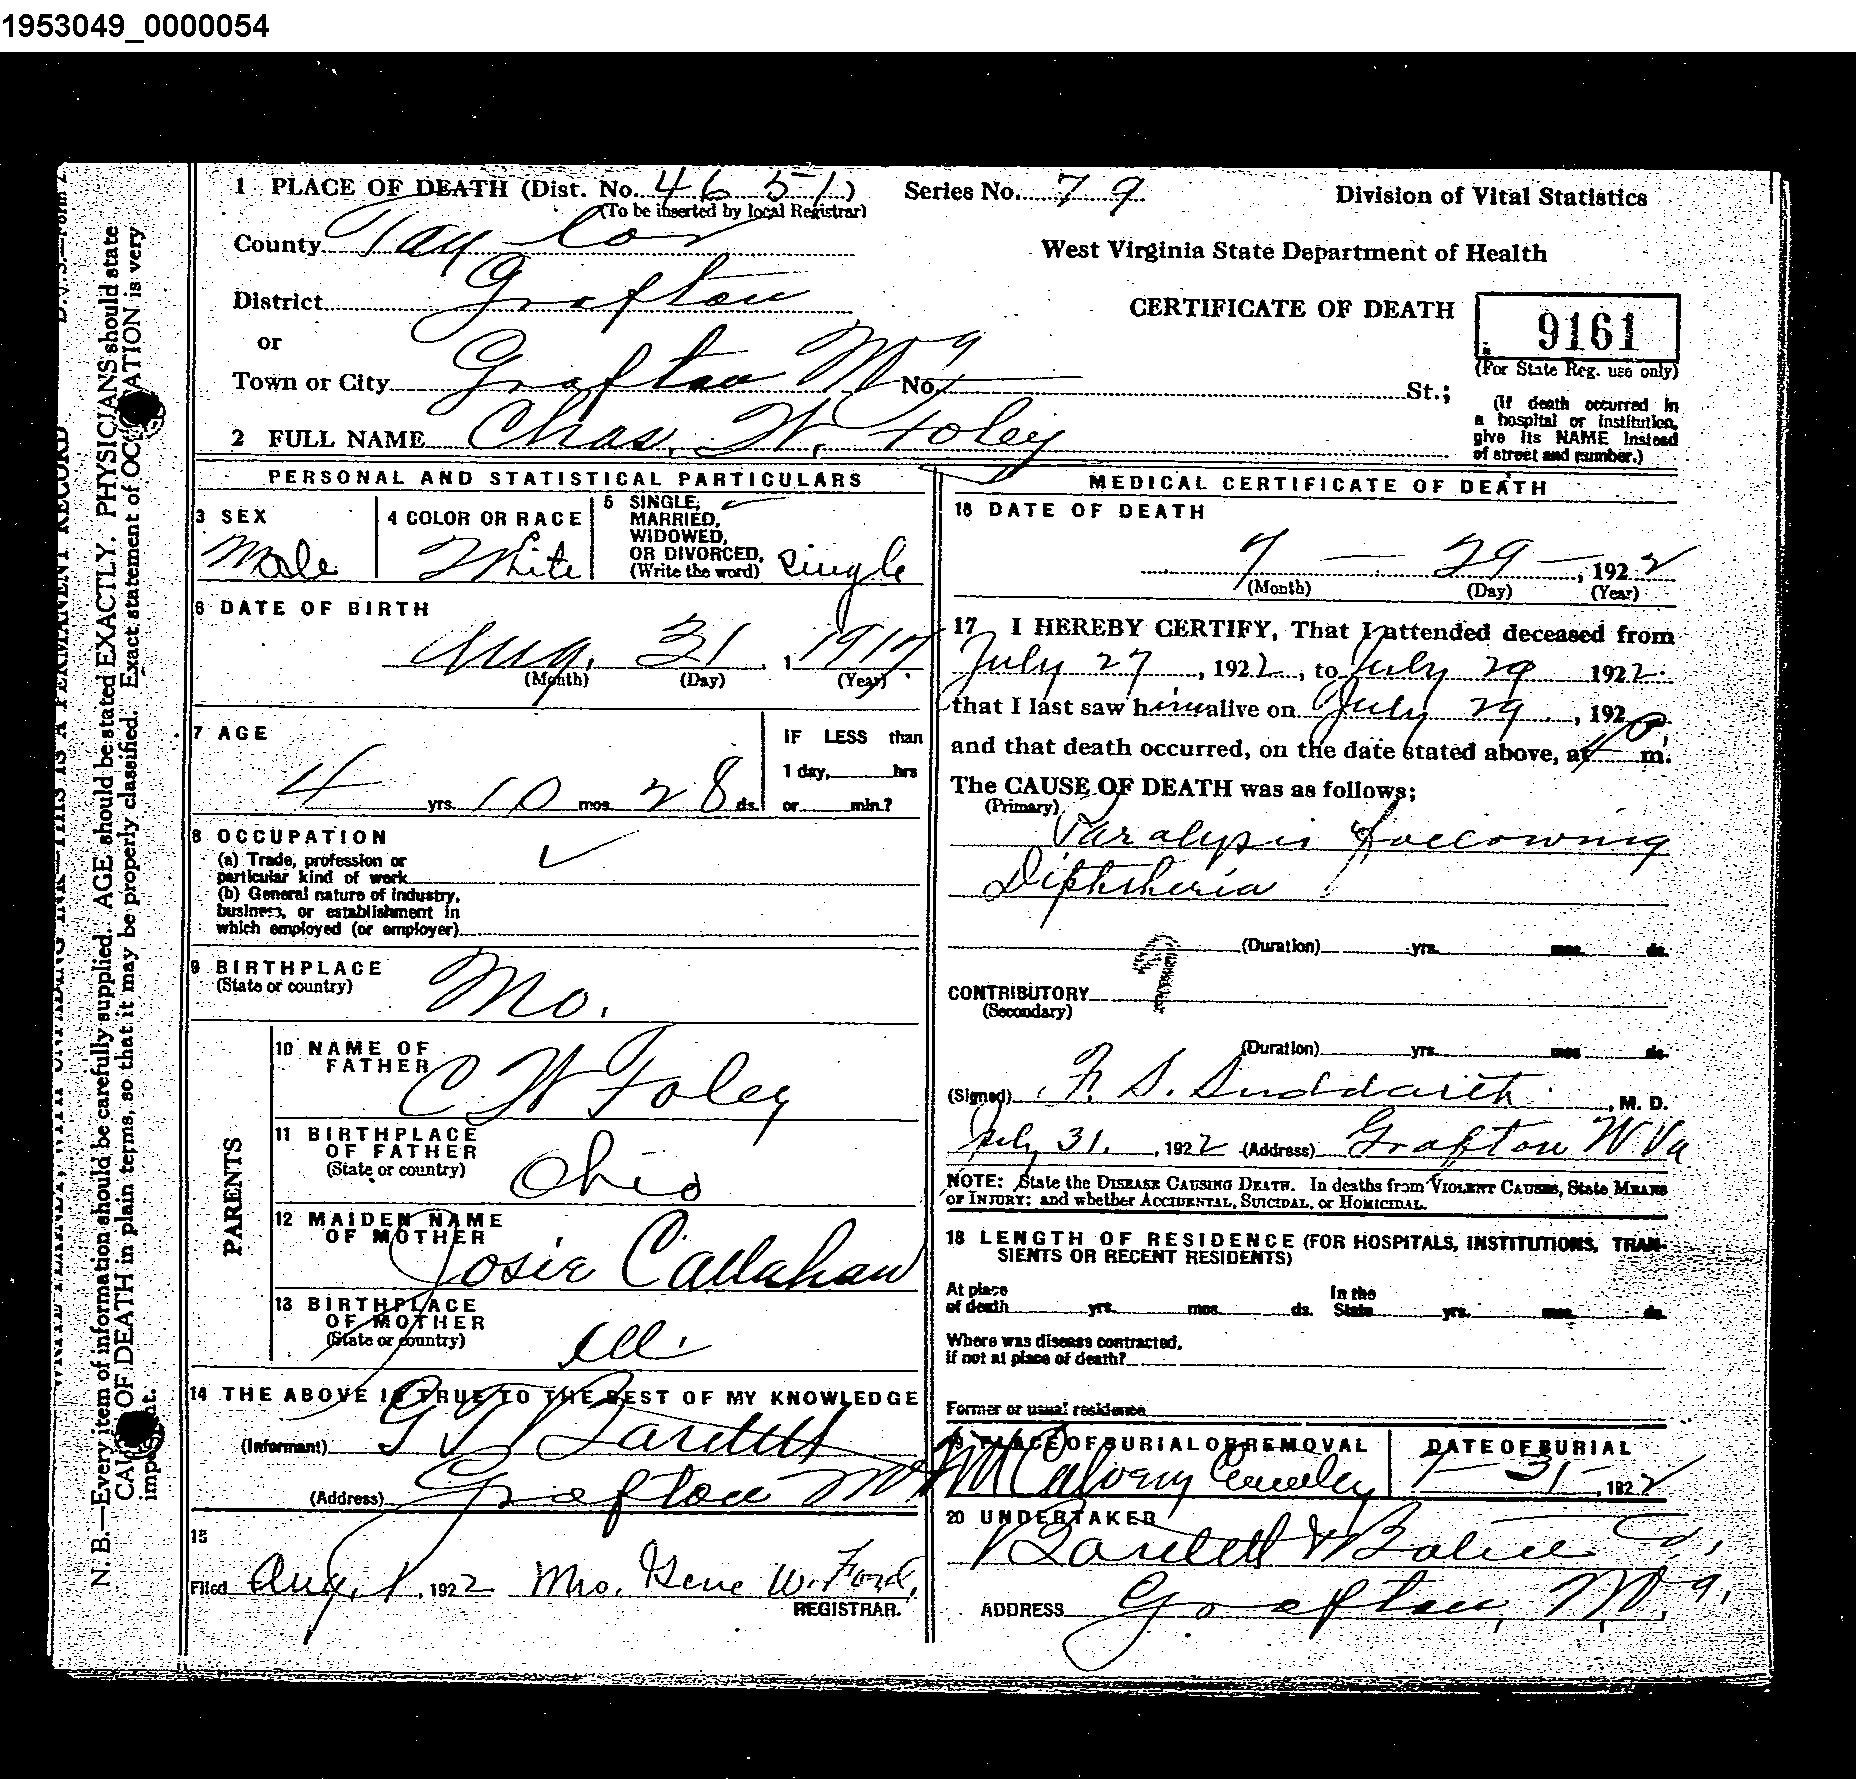 1953049_0000054
1 PLACE OF DEATH (Dist. No. 4651)
(To be inserted by local Registrar)
Series No. 79
Division of Vital Statistics
County Taylor
West Virginia State Department of Health
District Grafton
CERTIFICATE OF DEATH
9161
(For State Reg. use only)
or
Town or City Grafton W Va No. St.;
(If death occurred in
a hospital or institution,
give its NAME instead
of street and number.)
2 FULL NAME Chas. W. Foley
PERSONAL AND STATISTICAL PARTICULARS
3 SEX
Male
4 COLOR OR RACE
White
5 SINGLE,
MARRIED,
WIDOWED,
OR DIVORCED,
(Write the word) single
6 DATE OF BIRTH
Aug. 31, 1917
(Month) (Day) (Year)
7 AGE
4 yrs. 10 mos. 28 ds.
IF LESS than
1 day, hrs
or min.?
8 OCCUPATION
(a) Trade, profession or
particular kind of work
(b) General nature of industry,
business, or establishment in
which employed (or employer)
9 BIRTHPLACE
(State or country)
Mo.
PARENTS
10 NAME OF
FATHER
C W Foley
11 BIRTHPLACE
OF FATHER
(State or country)
Ohio
12 MAIDEN NAME
OF MOTHER
Josie Callahan
13 BIRTHPLACE
OF MOTHER
(State or country)
Ill.
14 THE ABOVE IS TRUE TO THE BEST OF MY KNOWLEDGE
(Informant)
(Address) Grafton
15
Filed Aug. 1, 1922 Mrs. Gene W. Ford,
REGISTRAR.
MEDICAL CERTIFICATE OF DEATH
16 DATE OF DEATH
7 — 29 —, 1922
(Month) (Day) (Year)
17 I HEREBY CERTIFY, That I attended deceased from
July 27, 1922, to July 29 1922.
that I last saw him alive on July 29, 192
and that death occurred, on the date stated above, at m.
The CAUSE OF DEATH was as follows;
(Primary)
Paralysis following
Diphtheria
(Duration) yrs. mos. ds.
CONTRIBUTORY
(Secondary)
(Duration) yrs. mos. ds.
(Signed) F. S. Suddarth, M. D.
July 31, 1922 (Address) Grafton W Va
NOTE: State the DISEASE CAUSING DEATH. In deaths from VIOLENT CAUSES, State MEANS
OF INJURY; and whether ACCIDENTAL, SUICIDAL, or HOMICIDAL.
18 LENGTH OF RESIDENCE (FOR HOSPITALS, INSTITUTIONS, TRAN-
SIENTS OR RECENT RESIDENTS)
At place
of death yrs. mos. ds.
In the
State yrs. mos. ds.
Where was disease contracted,
if not at place of death?
Former or usual residence
19 PLACE OF BURIAL OR REMOVAL
Mt Calvery
DATE OF BURIAL
7 — 31 —, 1922
20 UNDERTAKER
ADDRESS Grafton, W. Va.
N. B.—Every item of information should be carefully supplied. AGE should be stated EXACTLY. PHYSICIANS should state
OF DEATH in plain terms, so that it may be properly classified. Exact statement of OCCUPATION is very